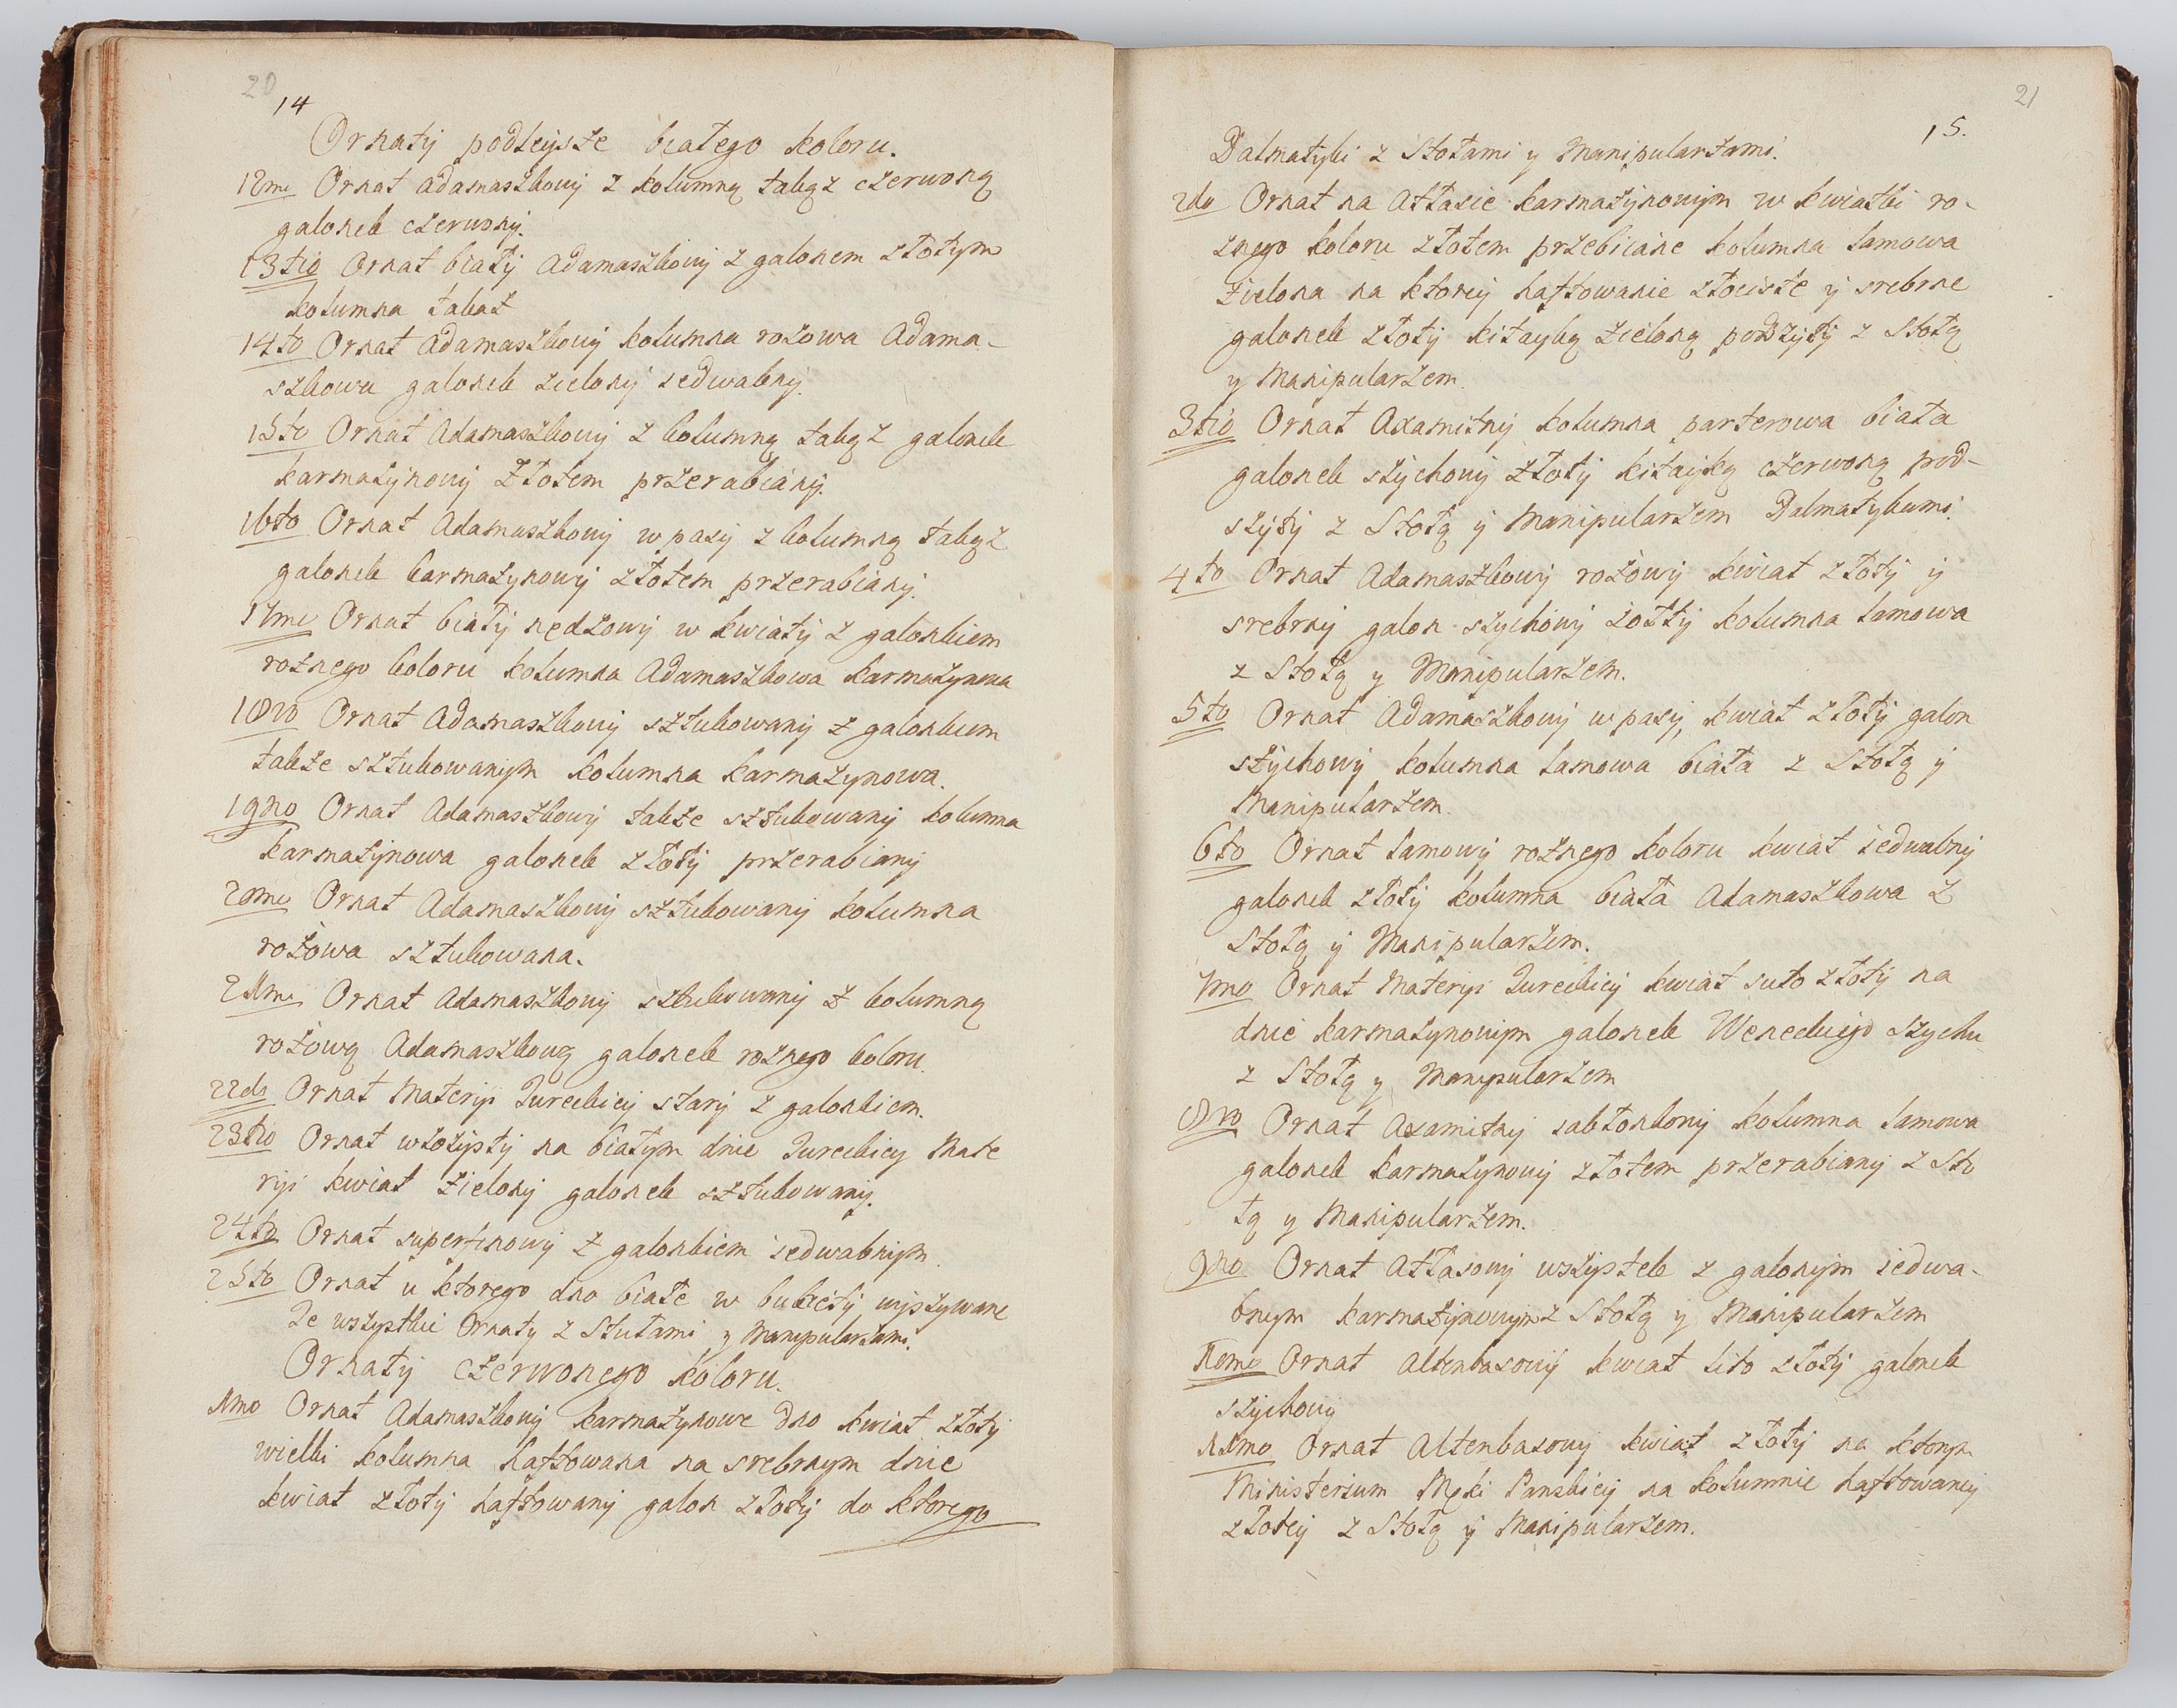 20
14
Ornaty podleysze białego koloru.
12mo Ornat adamaszkowy z kolumną takąż czerwoną
galonek czerwony.
13tio Ornat biały Adamaszkowy z galonem złotym
kolumna takaż
14to Ornat Adamaszkowy kolumna rożowa Adama-
szkowa galonek zielony iedwabny.
15to Ornat Adamaszkowy z kolumną takąż galonek
karmazynowy złotem przerabiany.
16to Ornat Adamaszkowy w pasy z kolumną takąż
galonek karmazynowy złotem przerabiany.
17mo Ornat biały nędzowy w kwiaty z galonkiem
rożnego koloru kolumna Adamaszkowa karmazynowa
18vo Ornat Adamaszkowy sztukowany z galonkiem
także sztukowanym kolumna karmazynowa.
19no Ornat Adamaszkowy także sztukowany kolumna
karmazynowa galonek złoty przerabiany
20mo Ornat Adamaszkowy sztukowany kolumna
rożowa sztukowana.
21mo Ornat Adamaszkowy sztukowany z kolumną
rożową Adamaszkową galonek rożnego koloru.
22do Ornat Materyi Tureckiey stary z galonkiem.
23tio Ornat włożysty na białym dnie Tureckiey Mate
ryi kwiat zielony galonek sztukowany.
24to Ornat superfinowy z galonkiem iedwabnym.
25to Ornat u ktorego dno białe w bukiety wyszywane
Te wszystkie Ornaty z Stułami y Manipularzami.
Ornaty czerwonego koloru.
1mo Ornat Adamaszkowy karmazynowe dno kwiat złoty
wielki kolumna haftowana na srebrnym dnie
kwiat złoty haftowany galon złoty do ktorego
21
15.
Dalmatyki z Stołami y Manipularzami.
2do Ornat na Atłasie karmazynowym w kwiatki ro-
znego koloru złotem przebiciane kolumna lamowa
zielona na ktorey haftowanie złociste y srebrne
galonek złoty kitayką zieloną podszyty z Stołą
y Manipularzem.
3tio Ornat Axamitny kolumna parterowa biała
galonek szychowy złoty kitayką czerwoną pod-
szyty z Stołą y Manipularzem Dalmatykami.
4to Ornat Adamaszkowy rożowy kwiat złoty y
srebrny galon szychowy żołty kolumna lamowa
z Stołą y Manipularzem.
5to Ornat Adamaszkowy w pasy, kwiat złoty galon
szychowy kolumna lamowa biała z Stołą y
Manipularzem.
6to Ornat lamowy rożnego koloru kwiat iedwabny
galonek złoty kolumna biała Adamaszkowa z
Stołą y Manipularzem.
7mo Ornat Materyi Tureckiey kwiat suto złoty na
dnie karmazynowym galonek Weneckiego szychu
z Stołą y Manipularzem
8vo Ornat Axamitny iabłonkowy kolumna lamowa
galonek karmazynowy złotem przerabiany z Sto
łą y Manipularzem.
9no Ornat Atłasowy wszystek z galonym iedwa-
bnym karmazynowym z Stołą y Manipularzem
10mo Ornat Altenbasowy kwiat lito złoty galonek
szychowy
11mo Ornat Altenbasowy kwiat złoty na ktorym
Ministerium Męki Panskiey na kolumnie haftowaney
złotey z Stołą y Manipularzem.